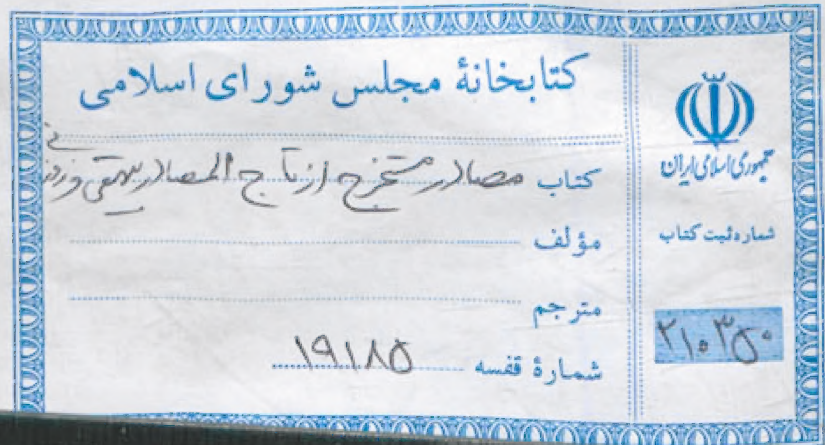 کتابخانهٔ مجلس شورای اسلامی
کتاب مصادر مستخرج از تاج المصادر بیهقی و زوزنی
مؤلف
مترجم
شمارهٔ قفسه ۱۹۱۸۵
جمهوری اسلامی ایران
شماره ثبت کتاب
۲۱۰۳۵۰